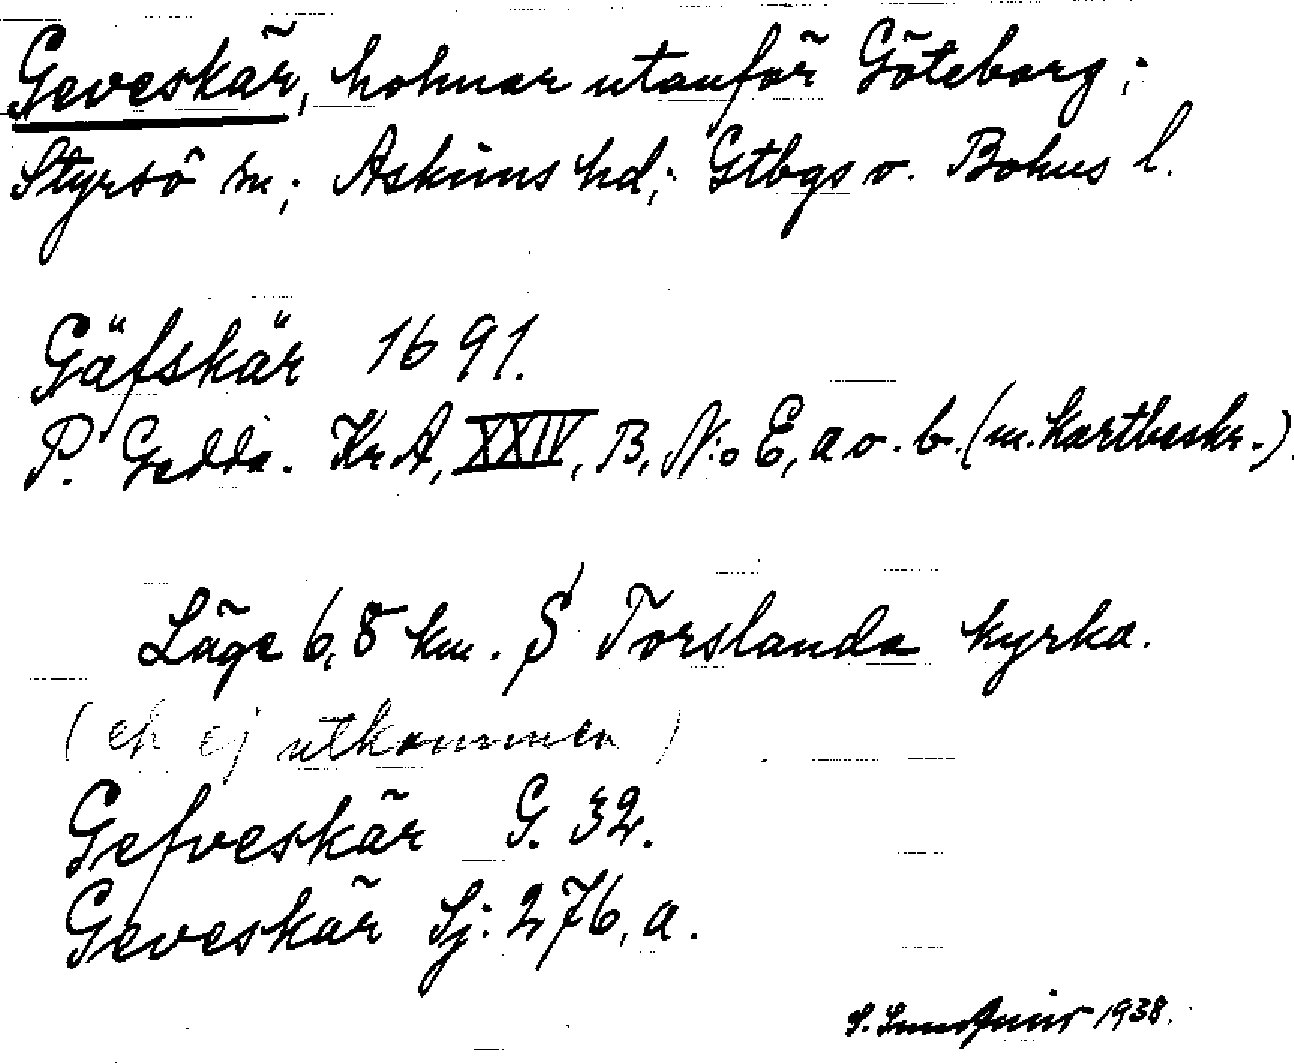 Geveskär, holmar utanför Göteborg;
Styrsö sn; Askims hd; Gtbgs o. Bohus l.
Gäfskär 1691.
P. Gedda. Kr A, XXIV, B, N:o E, a o. b. (m. kartbeskr.).
Läge 6,8 km. S Torslanda kyrka.
(ek ej utkommen)
Gefveskär G. 32.
Geveskär Sj: 276, a.
S. 1938.